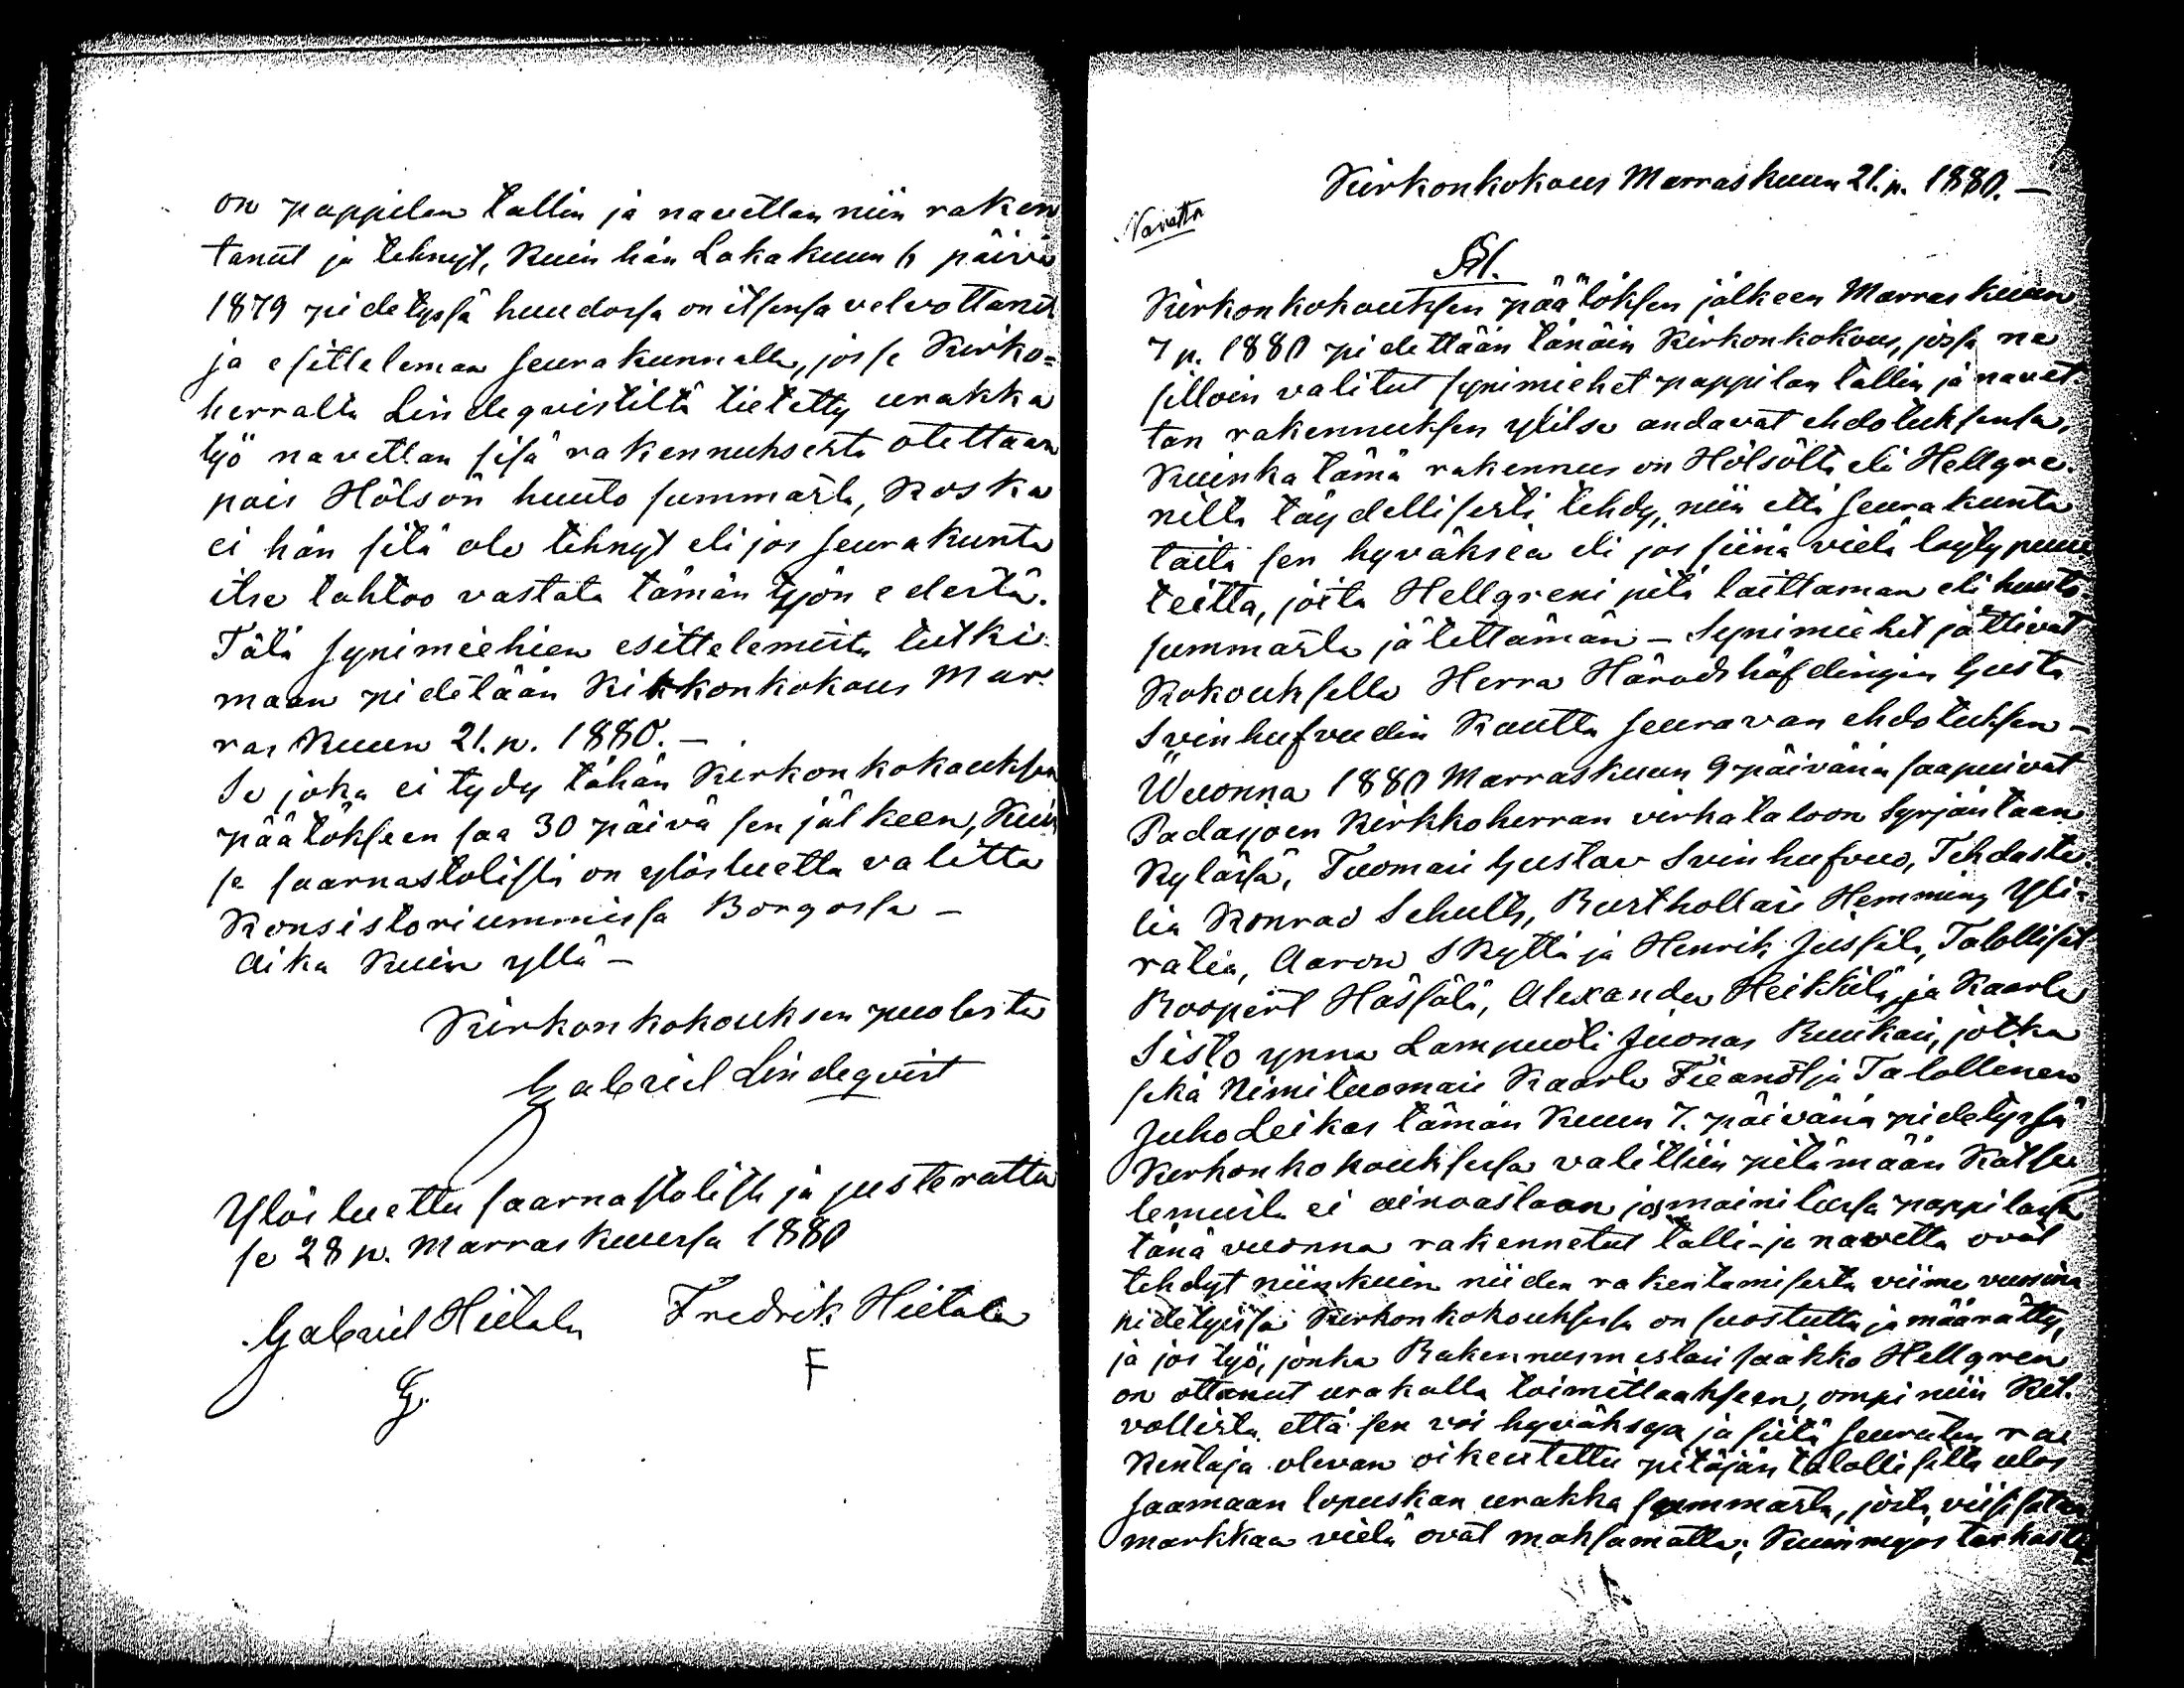 on pappilan tallin ja navettan niin raken
tanut ja tehnyt, kuin hän Lokakuun 6 päivä
1879 pidetyssä huudossa on itsensä velvottanut
ja esitteleman seurakunnalle, jos se Kirko=
herralta Lindeqvistiltä tietetty urakka
työ navettan sisä rakennuksesta otettaan
pois Hölsön huuto summasta, koska
ei hän sitä ole tehnyt eli jos seurakunta
itse tahtoo vastata tämän työn edestä.
Tätä synimiehien esittelemistä tutki
maan pidetään Kirkonkokous Mar
ras kuun 21. p. 1880. —
Se joka ei tydy tähän Kirkonkokouksen
päätökseen saa 30 päivä sen jälkeen, kuin
se saarnastolista on ylösluettu valitta
Konsistoriummissa Borgossa —
Aika kuin yllä —
Kirkonkokouksen puolesta
Gabriel Lindeqvist
Ylös luettu saarnastolista ja justerattu
se 28 p. Marraskuussa 1880
Gabriel Hietala Fredrik Hietala
G. F
Kirkonkokous Marraskuun 21. p. 1880. —
Navetta
§1.
Kirkonkokouksen päätöksen jälkeen Marraskuun
7 p. 1880 pidettään tänäin Kirkonkokous, jossa ne
silloin valitut synimiehet pappilan tallin ja navet
tan rakennuksen ylitse andavat ehdotuksensa,
Kuinka tämä rakennus on Hölsöltä eli Hellgre
nilta täydellisesti tehdy, niin että seurakunta
taita sen hyväksiä eli jos siinä vielä löyty puu
teitta, joita Hellgreni pitä laittaman eli huuto
summasta jätettämän — Synimiehet jättivät
Kokoukselle Herra Häradshöfdingin Gusta
Svinhufvudin kautta seuravan ehdotuksen —
Wuonna 1880 Marraskuun 9 päivänä saapuivat
Padasjoen Kirkkoherran virkataloon Syrjäntaan
Kylässä, Tuomari Gustav Svinhufvud, Tehdaste
lia Konrad Schultz, Rusthollari Hemming Yli=
ratia, Aaron Skyttä ja Henrik Jussila, Talolliset
Roopert Hässälä, Alexander Heikkilä, ja Kaarle
Sisto ynna Lampuoti Juonas Ruukari, jotka
sekä Nimituomari Kaarle Fieandt ja Talollinen
Juho Leikas tämän kuun 7. päivänä pidetyssä
Kirkonkokouksessa valittiin pitämään Katse
lemusta ei ainoastaan jos mainitussa pappilassa
tänä vuonna rakennetut talli- ja navetta ovat
tehdyt niinkuin niiden rakentamisesta viime vuonna
pidetyissä Kirkonkokouksessa on suostuttu ja määrätty,
ja jos työ, jonka Rakennusmestari Jaakko Hellgren
on ottanut urakalla toimittaakseen, ompi niin Kel
vollista että sen voi hyväksyä ja siitä seuraten ra
kentaja olevan oikeutettu pitäjän talollisilta ulos
saamaan lopuskan urakka summasta, josta viisi sataa
markkaa vielä ovat maksamatta; Kuin myös tarkaste